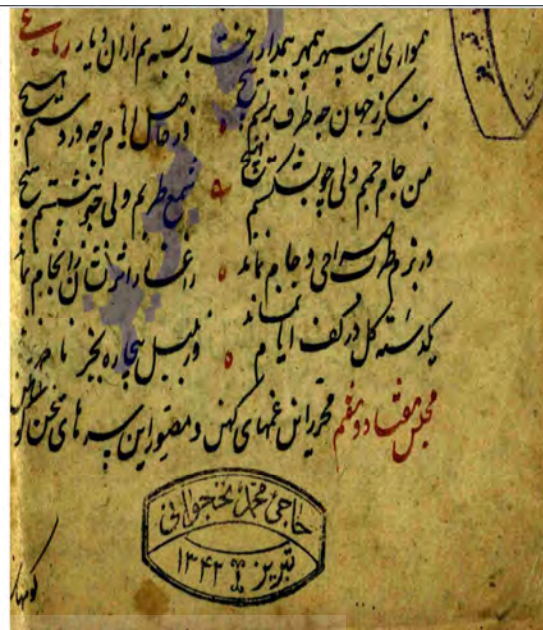 همواری این سپهر رخت بربسته هم ازان دیار رباعی
بنگر ز جهان چه طرف بربستم هیچ ه وز حاصل ایام چه در دستم هیچ
من جام جمم ولی چو بشکستم هیچ ه شمع طربم ولی چو بنشستم هیچ
در بزم طرب صراحی و جام نماند ه زاغاز اثر نشان ز انجام نماند
یکدسته گل در کف ایام نماند ه وز بلبل بیچاره بجز نام نماند
مجلس هفتاد و هفتم محرران غمهای کهن و این های سخن
حاجی محمد نخجوانی
تبریز ۱۳۴۲